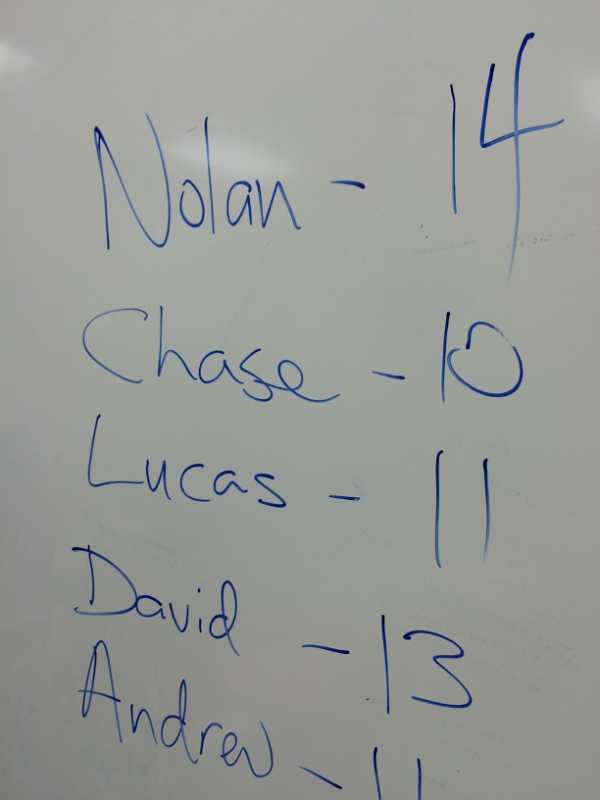 Nolan - 14
Chase - 10
Lucas - 11
David - 13
Andrew - 11